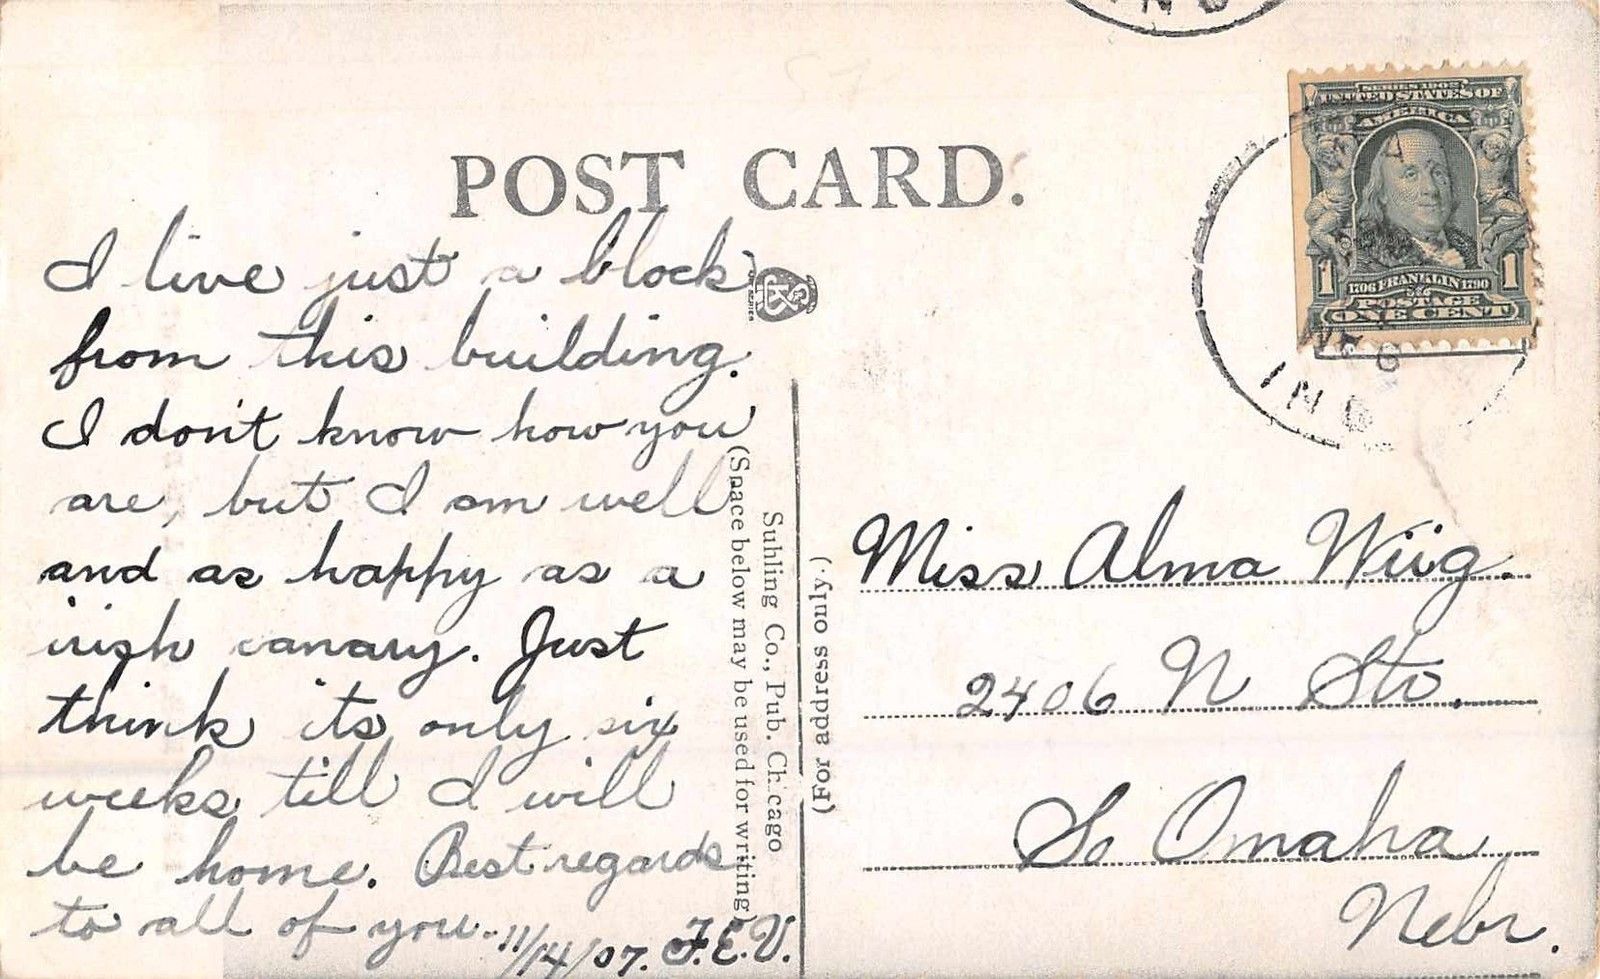 POST CARD.
I live just a block
from this building.
I don't know how you
are, but I am well
and as happy as a
irish canary. Just
think its only six
weeks till I will
be home. Best regards
to all of you. 11/14/07. F.E.V.
(Space below may be used for writing)
Suhling Co., Pub. Chicago
(For address only.)
SERIES 1902
UNITED STATES OF
AMERICA
1 1706 FRANKLIN 1790 1
POSTAGE
ONE CENT
IND
Miss Alma Wiig.
2406 N Str.
So Omaha
Nebr.